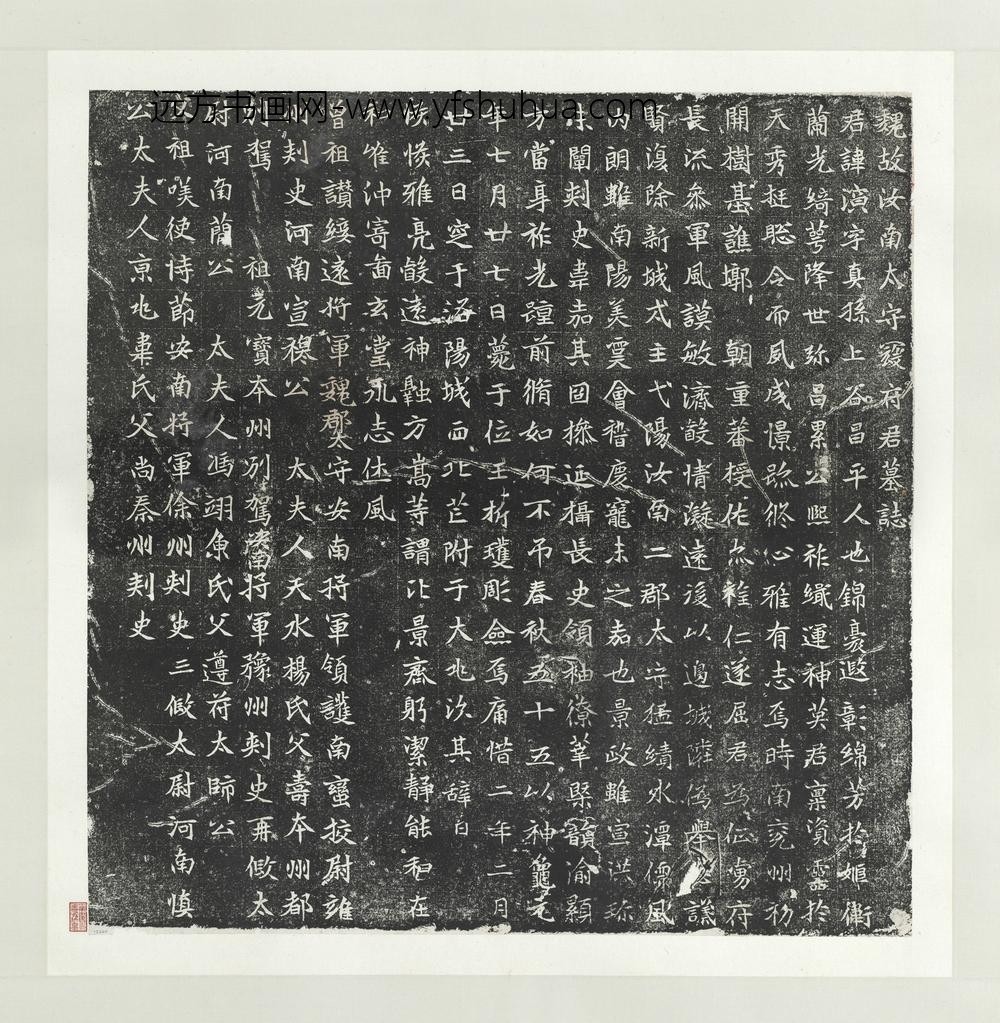 远方书画网-www.yfshuhua.com
魏故汝南太守寇府君墓誌
君諱演字真孫上谷昌平人也錦豪遐彰綿芳於姬衛
蘭光綺萼降世弥昌累公熙祚織運神英君稟資靈於
天秀挺聡令而夙成憬跡終心雅有志焉時南兖州初
開樹基譙鄴朝重蕃授佐杰難仁遂屈君為征虜府
長流叅軍風謨敏濟毅情凝遠後以邊城隣偽舉謙
賢復除新城弋主弋陽汝南二郡太守猛績水潭儒風
内朗雖南陽美 會稽慶寵未之嘉也景政雖宣洪珎
未闡刺史韋嘉其固操延攝長史領袖僚萃緊韻渝顯
方當身祚光蹱前脩如何不弔春秋五十五以神龜元
年七月廿七日薨于位玉折瓊彫僉焉痛惜二年二月
廿三日窆于洛陽城西北芒附于大兆次其辭曰
猗惔雅亮毅遠神融方嵩等謂比景齊躬潔靜能和在
和惟沖寄啚玄堂永志休風
曾祖讃綏遠將軍魏郡太守安南將軍領護南蠻挍尉雍
州刾史河南宣穆公 太夫人天水楊氏父壽本州都
別駕 祖元寶本州別駕安南將軍豫州刾史再假太
尉河南簡公 太夫人馮翊魚氏父遵苻太師公
父祖嘆使恃節安南將軍徐州刾史三假太尉河南慎
公太夫人京兆韋氏父尚秦州刾史